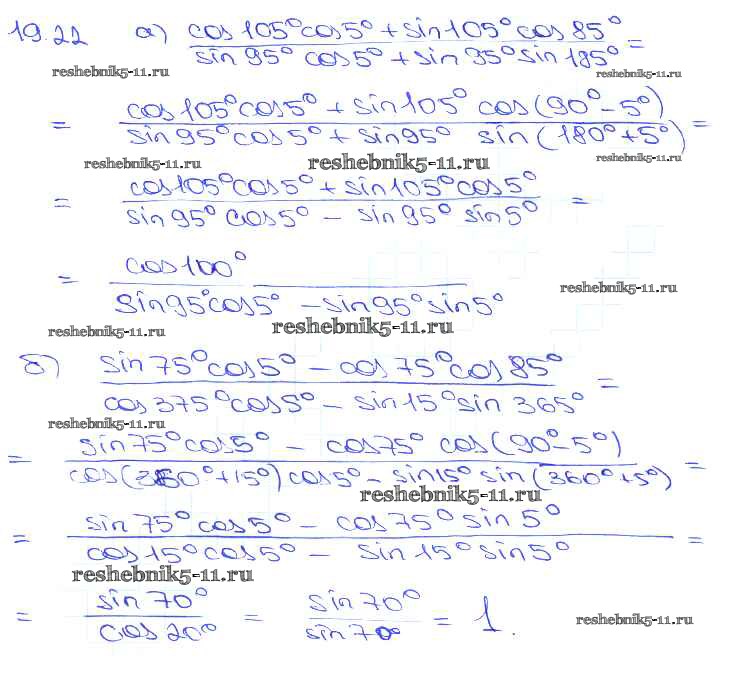 19.22 а) cos105°cos5° + sin105° cos85° =
sin95° cos5° + sin95° sin185°
reshebnik5-11.ru reshebnik5-11.ru
= cos105°cos5° + sin105° cos(90°-5°) =
sin95°cos5° + sin95° sin(180°+5°)
reshebnik5-11.ru reshebnik5-11.ru reshebnik5-11.ru
= cos105°cos5° + sin105°cos5° =
sin95° cos5° - sin95° sin5°
= cos100°
sin95°cos5° - sin95°sin5°
reshebnik5-11.ru
reshebnik5-11.ru reshebnik5-11.ru
б) sin75°cos5° - cos75°cos85° =
cos375°cos5° - sin15°sin365°
reshebnik5-11.ru
= sin75°cos5° - cos75° cos(90°-5°) =
cos(360°+15°) cos5° - sin15° sin(360°+5°)
reshebnik5-11.ru
= sin75°cos5° - cos75°sin5° =
cos15°cos5° - sin15°sin5°
reshebnik5-11.ru
= sin70° = sin70° = 1.
cos20° sin70°
reshebnik5-11.ru